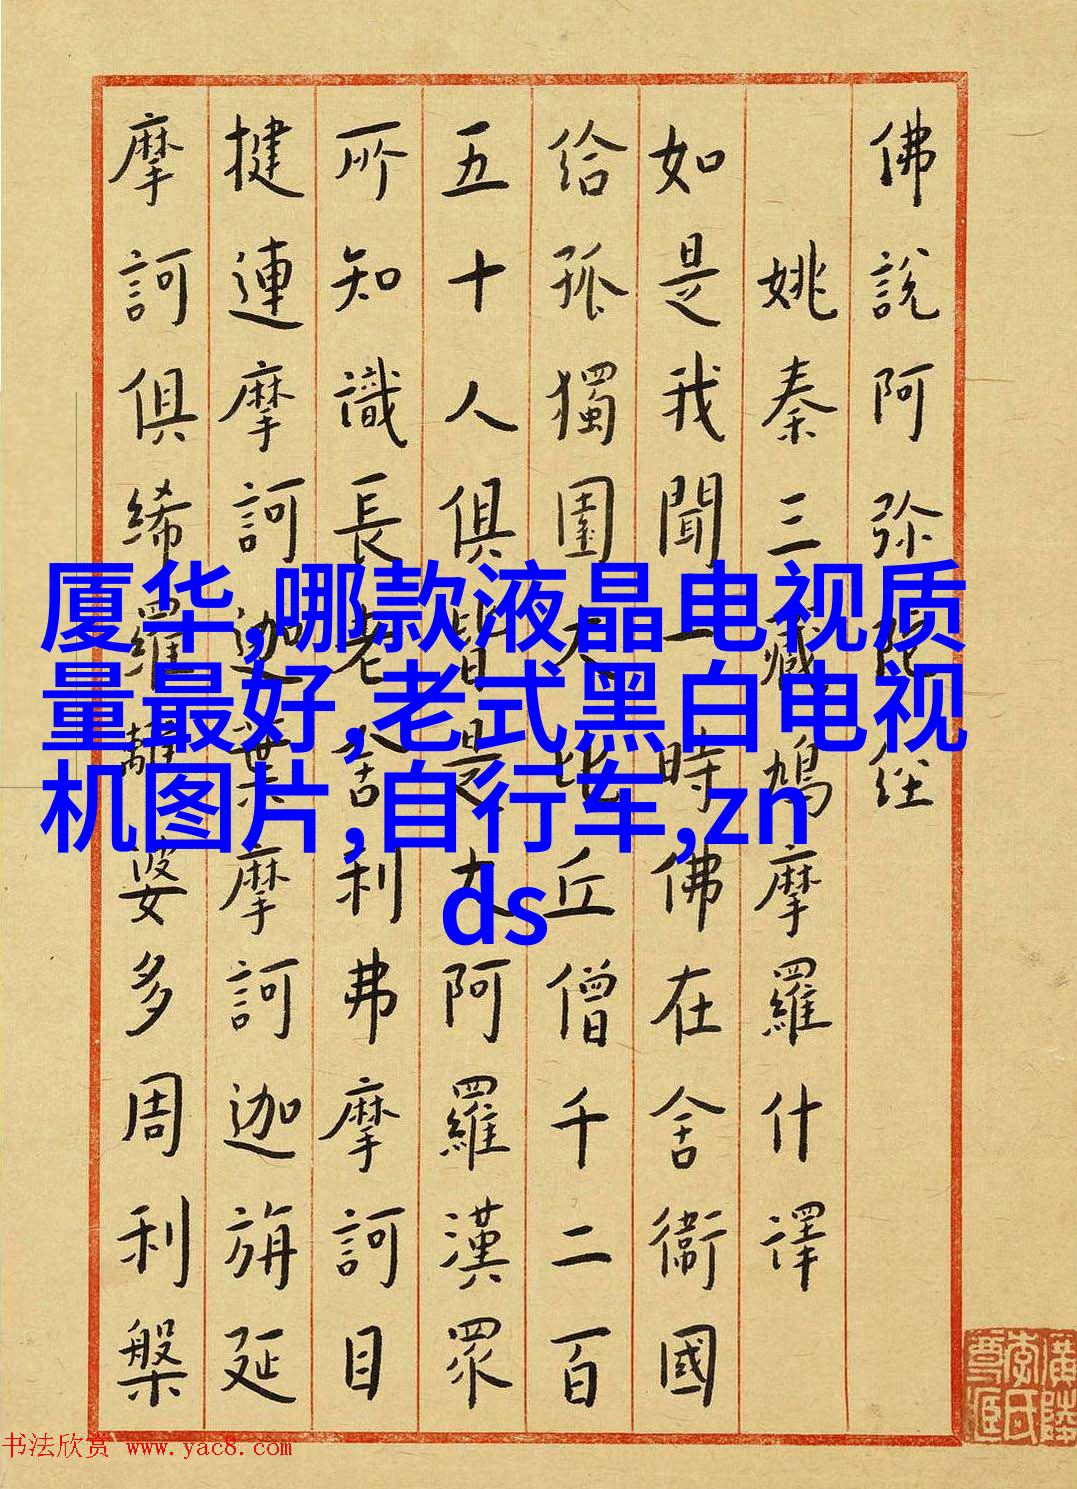 佛說阿弥陀経
姚秦三藏鳩摩羅什譯
如是我聞一時佛在舍衞國
给孤獨園大比丘僧千二百
五十人俱皆是大阿羅漢眾
所知識長老舍利弗摩訶目
揵連摩訶迦葉摩訶迦旃延
摩訶俱絺羅離婆多周利槃
厦华,哪款液晶电视质
量最好,老式黑白电视
机图片,自行车,zn
ds
书法欣赏 www.yac8.com